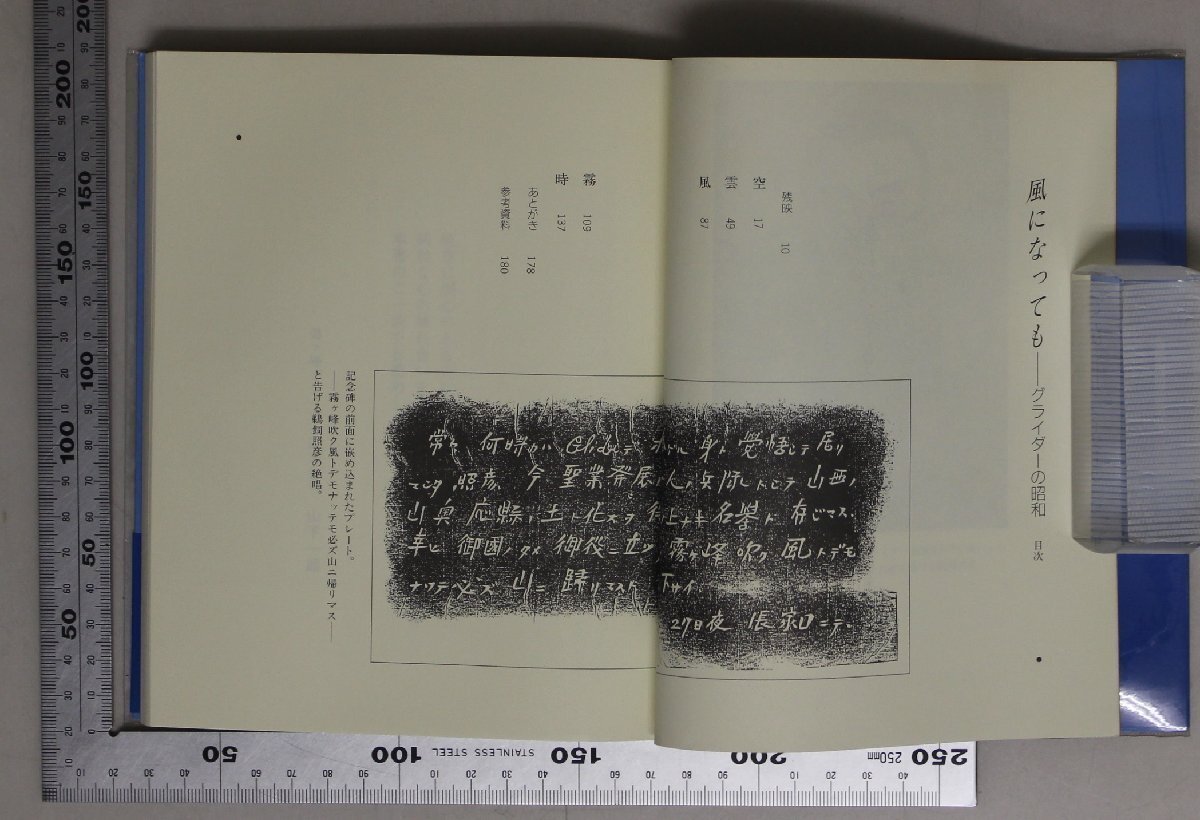 風になっても——グライダーの昭和 目次
残映 10
空 17
雲 49
風 87
霧 109
時 137
あとがき 178
参考資料 180
常々 何時かハ Gliderデ 身ヲ 覚悟シテ 居リ
マシタ 照彦 今 聖業発展ノ 人 トシテ 山西ノ
山奥 応縣ノ 土ト化スヲ 上ナキ名挙ト 存ジマス
幸ヒ 御國ノタメ 御役ニ立ツ 霧ヶ峰 吹ク 風トデモ
ナッテ必ズ 山ニ 歸リマスト 下サイ
27日夜 張家口ニテ
記念碑の前面に嵌め込まれたプレート。
——霧ヶ峰吹ク風トデモナッテモ必ズ山ニ帰リマス——
と告げる鵜飼照彦の絶唱。
STAINLESS STEEL
50
100
150
200
250
250mm
50
100
150
200